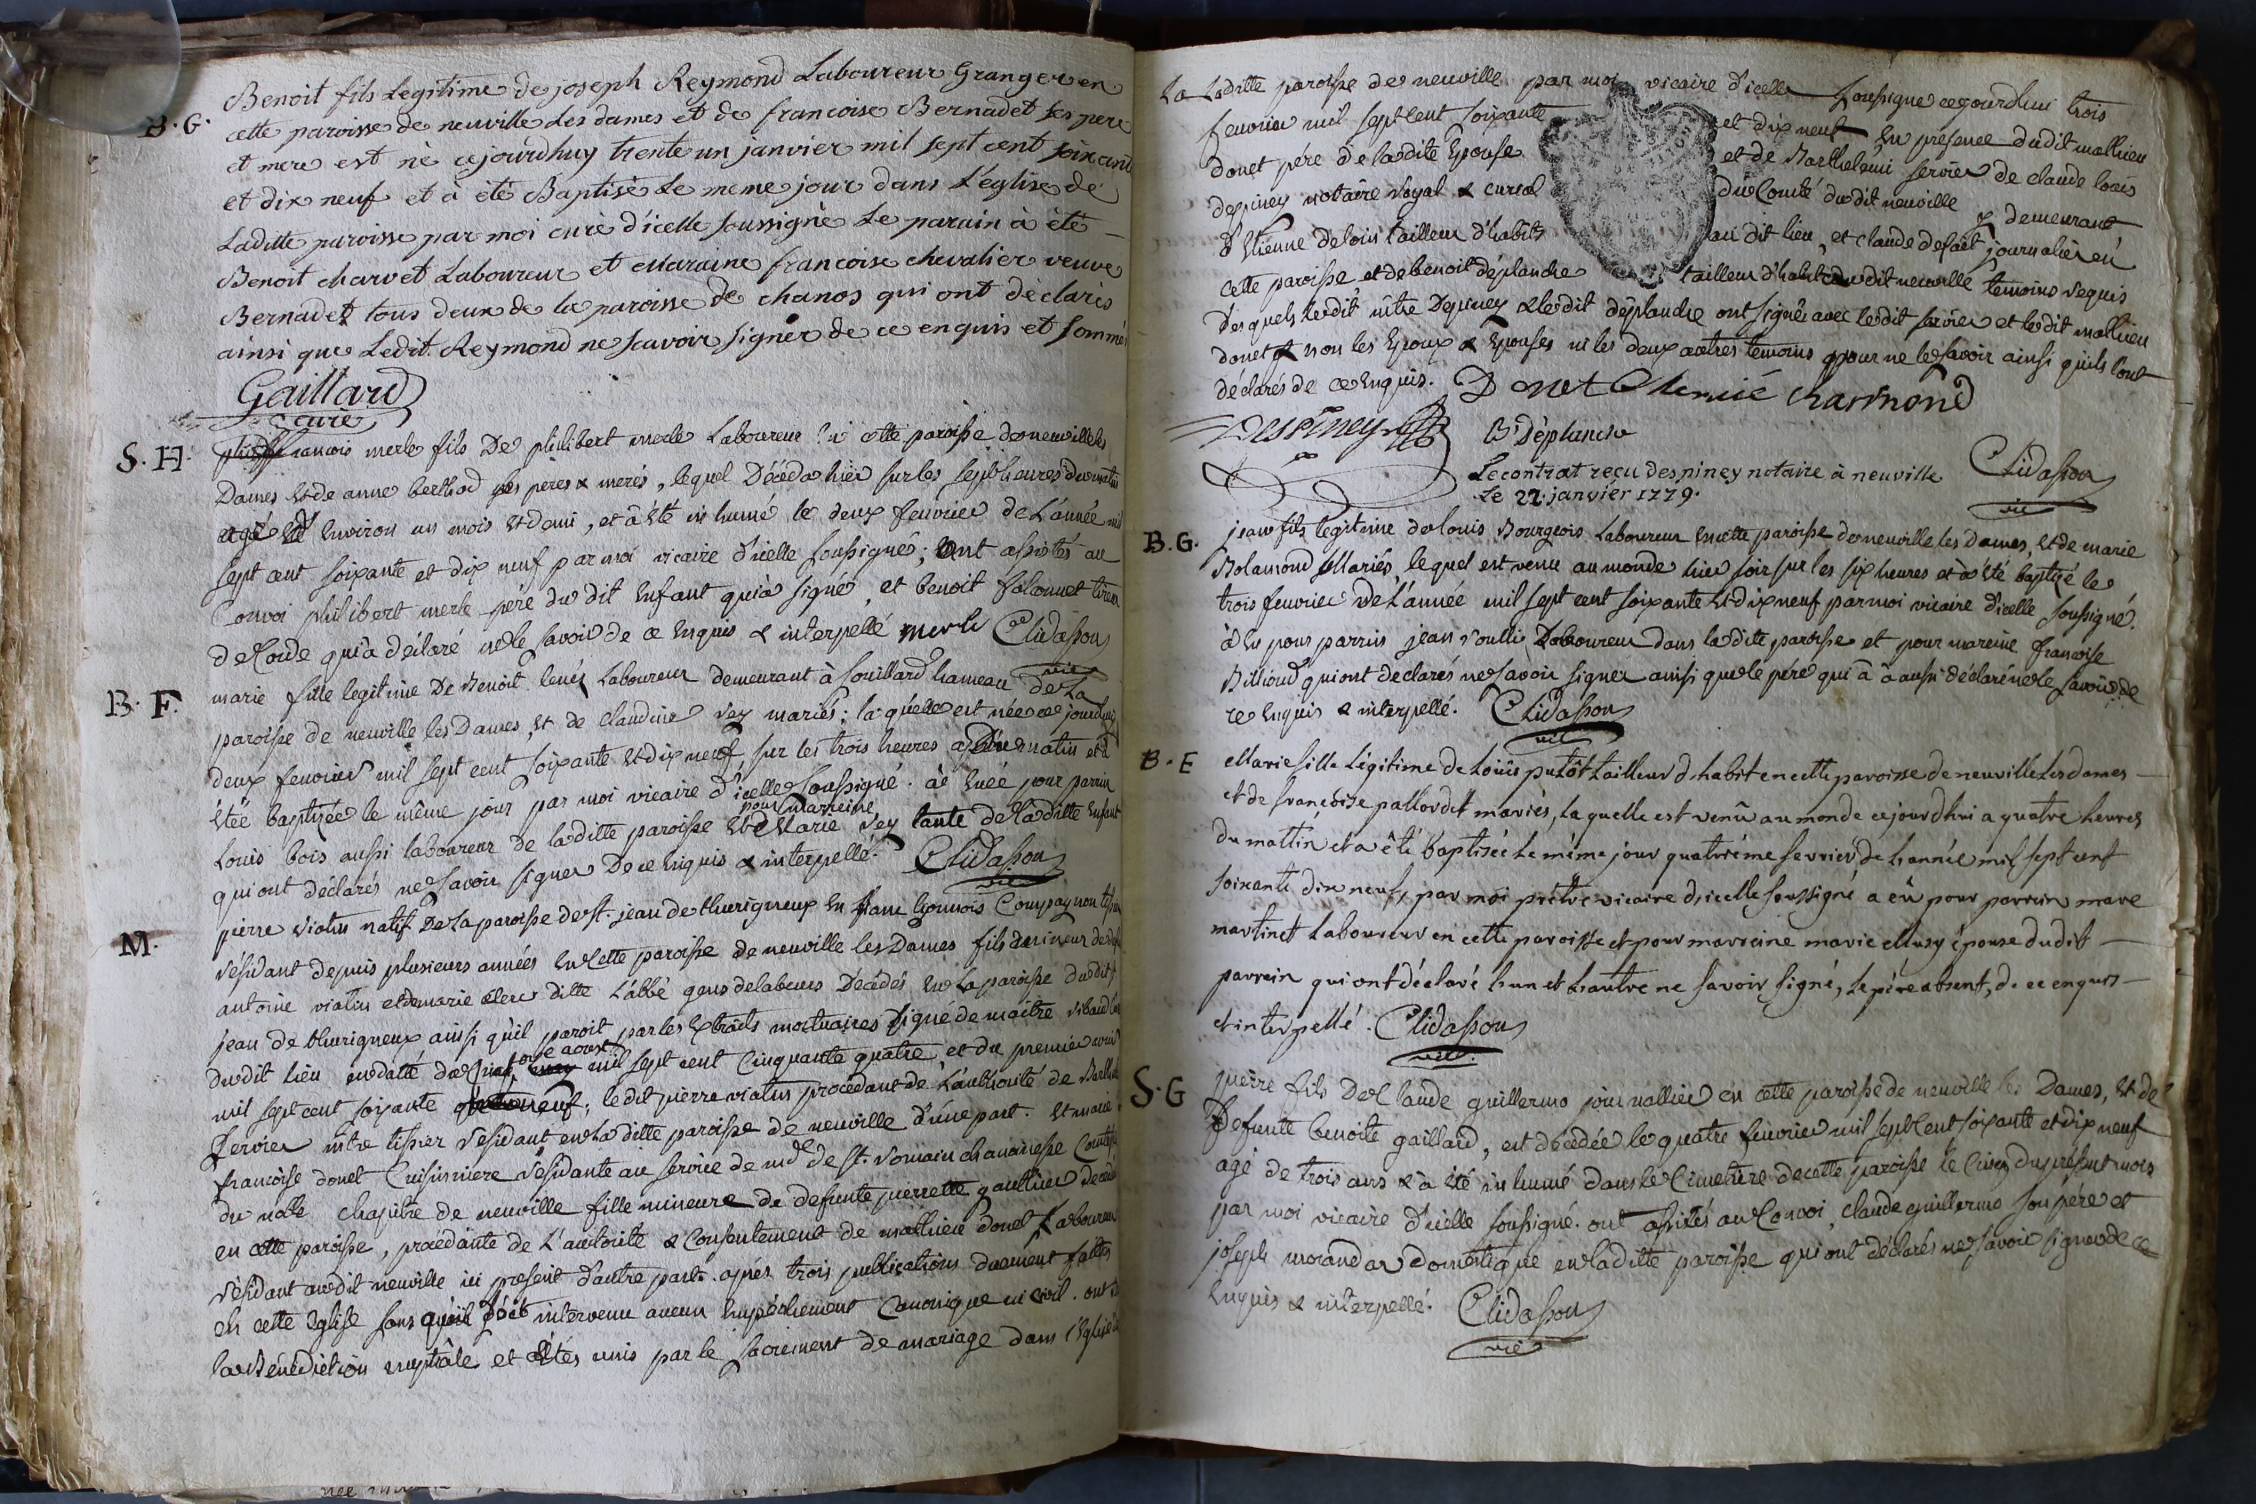 B. G. Benoit fils Legitime de joseph Reymond Laboureur Granger en
cette paroisse de neuville Les dames et de francoise Bernadet ses pere
et mere est né cejourdhuy trente un janvier mil sept cent soixante
et dix neuf et à été Baptisé Le meme jour dans L'église de
Laditte paroisse par moi curé d'icelle soussigné Le parain à été
Benoit charvet Laboureur et Maraine francoise chevalier veuve
Bernadet tous deux de la paroisse de chanos qui ont déclarés
ainsi que Ledit Reymond ne scavoir signer de ce enquis et sommés
Gaillard
curé
S. H. francois merle fils De philibert merle Laboureur cette paroisse de neuville les
Dames et de anne berthod ses peres & meres, lequel Décéda hier sur les sept heures du matin
agé Environ un mois et demi, et à été in humé le deux feuvrier de L'année mil
sept cent soixante et dix neuf par moi vicaire d'icelle soussigné; ont assistés au
Convoi philibert merle père du dit Enfant qui à signé, et benoit
qui à déclaré ne le savoir de ce Enquis & interpellé merle Clidasson
vic
B. F. marie fille legitime De Benoit Laboureur demeurant à souillard hameau de La
paroisse de neuville les Dames, et de claudine vey mariés; la quelle est née ce jourdhui
deux feuvrier mil sept cent soixante et dix neuf, sur les trois heures du matin et à
étée baptizée le même jour par moi vicaire d'icelle soussigné. à Euée pour parrin
pour marreine
Louis bois aussi laboureur de laditte paroisse et Marie vey tante de laditte Enfant
qui ont déclarés ne savoir signer De ce Enquis & interpellé. Clidasson
vic
M. pierre viatin natif De la paroisse de st. jean de thurigneux En franc lyonnois Compagnon
résidant depuis plusieurs années En cette paroisse de neuville les Dames fils mineur de
antoine viatin et de marie clerc ditte L'abbé gens de labeurs Décédés En la paroisse du dit st
jean de thurigneux ainsi qu'il paroit par les Extraits mortuaires signé de maitre
onze aoust
du dit lieu en datte du mil sept cent Cinquante quatre, et du premier avril
mil sept cent soixante neuf; le dit pierre viatin procédant de L'authorité de
servier mtre tissier résidant en la ditte paroisse de neuville d'une part. Et marie
francoise donet Cuisinniere résidante au service de mde de st. romain chanoinesse Comtesse
du noble chapitre de neuville fille mineure de defunte pierrette gaultier décédée
en cette paroisse, procédante de L'autorité & Consentement de mathieu donet Laboureur
résidant au dit neuville ici présent d'autre part. après trois publications duement faittes
en cette Eglise sans qu'il soit intervenu aucun Empêchement Canonique ni civil. ont
la Bénédiction nuptiale et étés unis par le sacrement de mariage dans l'Eglise de
La Laditte paroisse de neuville par moi vicaire d'icelle soussigné cejourdhui trois
feuvrier mil sept cent soixante et dix neuf En présence dudit mathieu
donet père de la dite Epouse et de Barthelemi servier de claude louis
despiney notaire royal & curial du Comté du dit neuville
d'Etienne tailleur d'habits au dit lieu, et claude journalier en demeurant
cette paroisse et de benoit déplanche tailleur d'habits du dit neuville témoins requis
Des quels le dit mtre Despiney & le dit déplanche ont signés avec le dit servier et le dit mathieu
donet & non les Epoux & Epouses ni les deux autres temoins pour ne le savoir ainsi qu'ils l'ont
déclarés de ce Enquis. Donet charmond
Despiney B. Déplanche
Le contrat reçu despiney notaire à neuville Clidasson
Le 22. janvier 1779. vic
B. G. jean fils legitime de louis Bourgeois Laboureur En cette paroisse de neuville les Dames, et de marie
Bolamond Mariés, lequel est venu au monde hier soir sur les six heures et à été baptizé le
trois feuvrier de L'année mil sept cent soixante et dix neuf par moi vicaire d'icelle soussigné.
à Eu pour parrin jean Laboureur dans la dite paroisse et pour mareine francoise
Billioud qui ont déclarés ne savoir signer ainsi que le père qui à à aussi déclaré ne le savoir de
ce Enquis & interpellé. Clidasson
vic
B. F Marie fille Légitime de Loüis putôt tailleur d'habit en cette paroisse de neuville Les dames
et de françoise pallordet mariés, La quelle est venû au monde cejourdhui a quatre heures
du mattin et a été baptisée Le même jour quatriéme fevrier de L'année mil sept cent
soixante dix neuf, par moi prêtre vicaire d'icelle soussigné a eû pour parrein marc
martinet Laboureur en cette paroisse et pour marreine marie Musy épouse dudit
parrein qui ont déclaré L'un et L'autre ne savoir signé, Le pére absent, de ce enquis
et interpellé. Clidasson
vic.
S. G pierre fils De Claude guillermo journallier en cette paroisse de neuville les Dames, Et de
Defunte benoite gaillard, est décédée le quatre feuvrier mil sept Cent soixante et dix neuf
agé de trois ans & à été in humé dans le Cimetiere de cette paroisse le Cinq du présent mois
par moi vicaire d'icelle soussigné. ont assistés au Convoi, claude guillermo son pére et
joseph morandas Domestique en laditte paroisse qui ont déclarés ne savoir signer de ce
Enquis & interpellé. Clidasson
vic